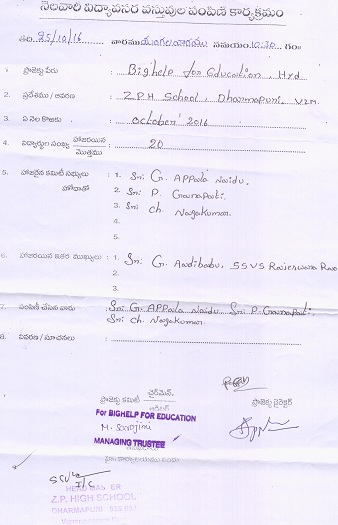 నెలవారీ విద్యావసర వస్తువుల పంపిణీ కార్యక్రమం
తేది 25/10/16 వారము మంగళవారము సమయం 10:30 గం॥
1. ప్రాజెక్టు పేరు : Bighelp for Education, Hyd
2. ప్రదేశము / ఆవరణ : Z.P.H School, Dharmapuri, VZM.
3. ఏ నెల కొరకు : October' 2016
4. విద్యార్థుల సంఖ్య హాజరయిన / మొత్తము : 20
5. హాజరైన కమిటీ సభ్యులు : 1. Sri G. APPala Naidu.
హోదాతో 2. Sri P. Ganapati.
3. Sri Ch. Nagakumar.
4.
5.
6. హాజరయిన ఇతర ముఖ్యులు : 1. Sri. G. Aadibabu, SSVS Rajeswara Rao
2.
3.
7. పంపిణీ చేసిన వారు : Sri G. APPala Naidu, Sri P. Ganapati,
Sri Ch. Nagakumar.
8. వివరణ / సూచనలు :
ప్రాజెక్టు కమిటీ చైర్మెన్, ప్రాజెక్టు డైరెక్టర్
For BIGHELP FOR EDUCATION
M. Sarojini
MANAGING TRUSTEE
I/C
HEAD MASTER
Z.P. HIGH SCHOOL
DHARMAPURI